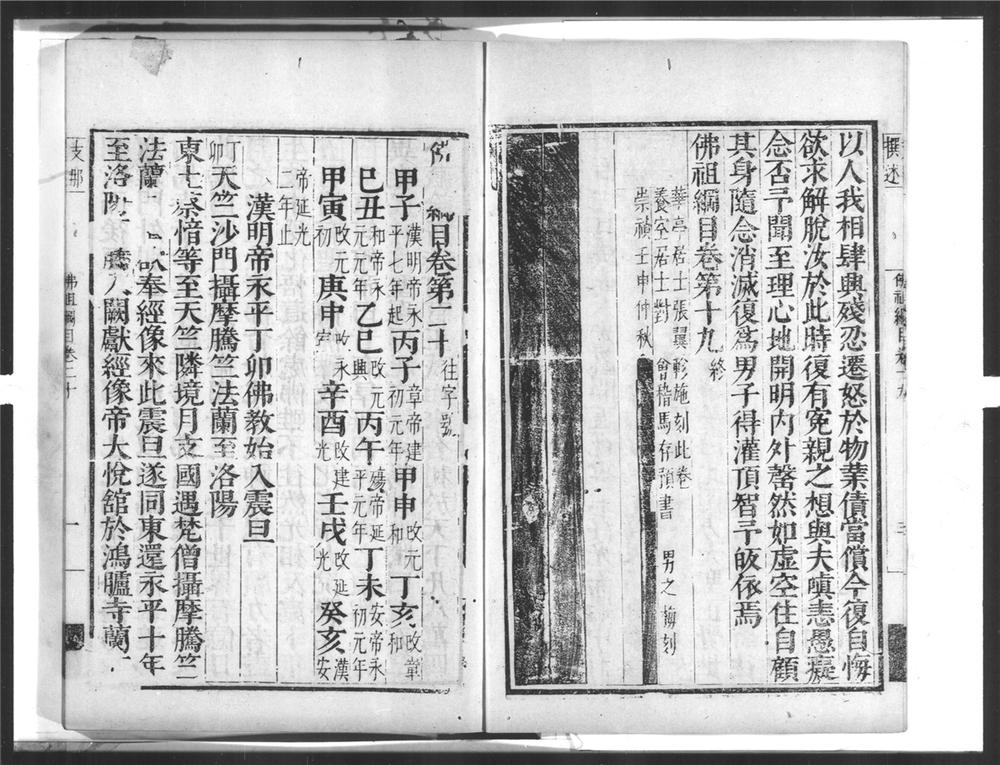 撰述
以人我相肆興殘忍遷怒於物業債當償今復自悔
欲求解脫汝於此時復有冤親之想與夫嗔恚愚癡
念否予聞至理心地開明內外罄然如虛空住自顧
其身隨念消滅復為男子得灌頂智予皈依焉
佛祖綱目卷第十九 終
華亭居士張翼軫施刻此卷
養卒居士對 會稽馬存預書
崇禎壬申仲秋 男之 刻
綱目卷第二十 往字號
甲子 漢明帝永平七年起 丙子 章帝建初元年 甲申 改元元和 丁亥 改章和
己丑 和帝永元元年 乙巳 改元元興 丙午 殤帝延平元年 丁未 安帝永初元年
甲寅 改元元初 庚申 改永寧 辛酉 改建光 壬戌 改延光 癸亥 漢安
帝延光二年止
漢明帝永平丁卯佛教始入震旦
丁卯 天竺沙門攝摩騰竺法蘭至洛陽
東土蔡愔等至天竺隣境月支國遇梵僧攝摩騰竺
法蘭 奉經像來此震旦遂同東還永平十年
至洛陽 後騰入闕獻經像帝大悅舘於鴻臚寺蘭
支那
佛祖綱目卷二十
一